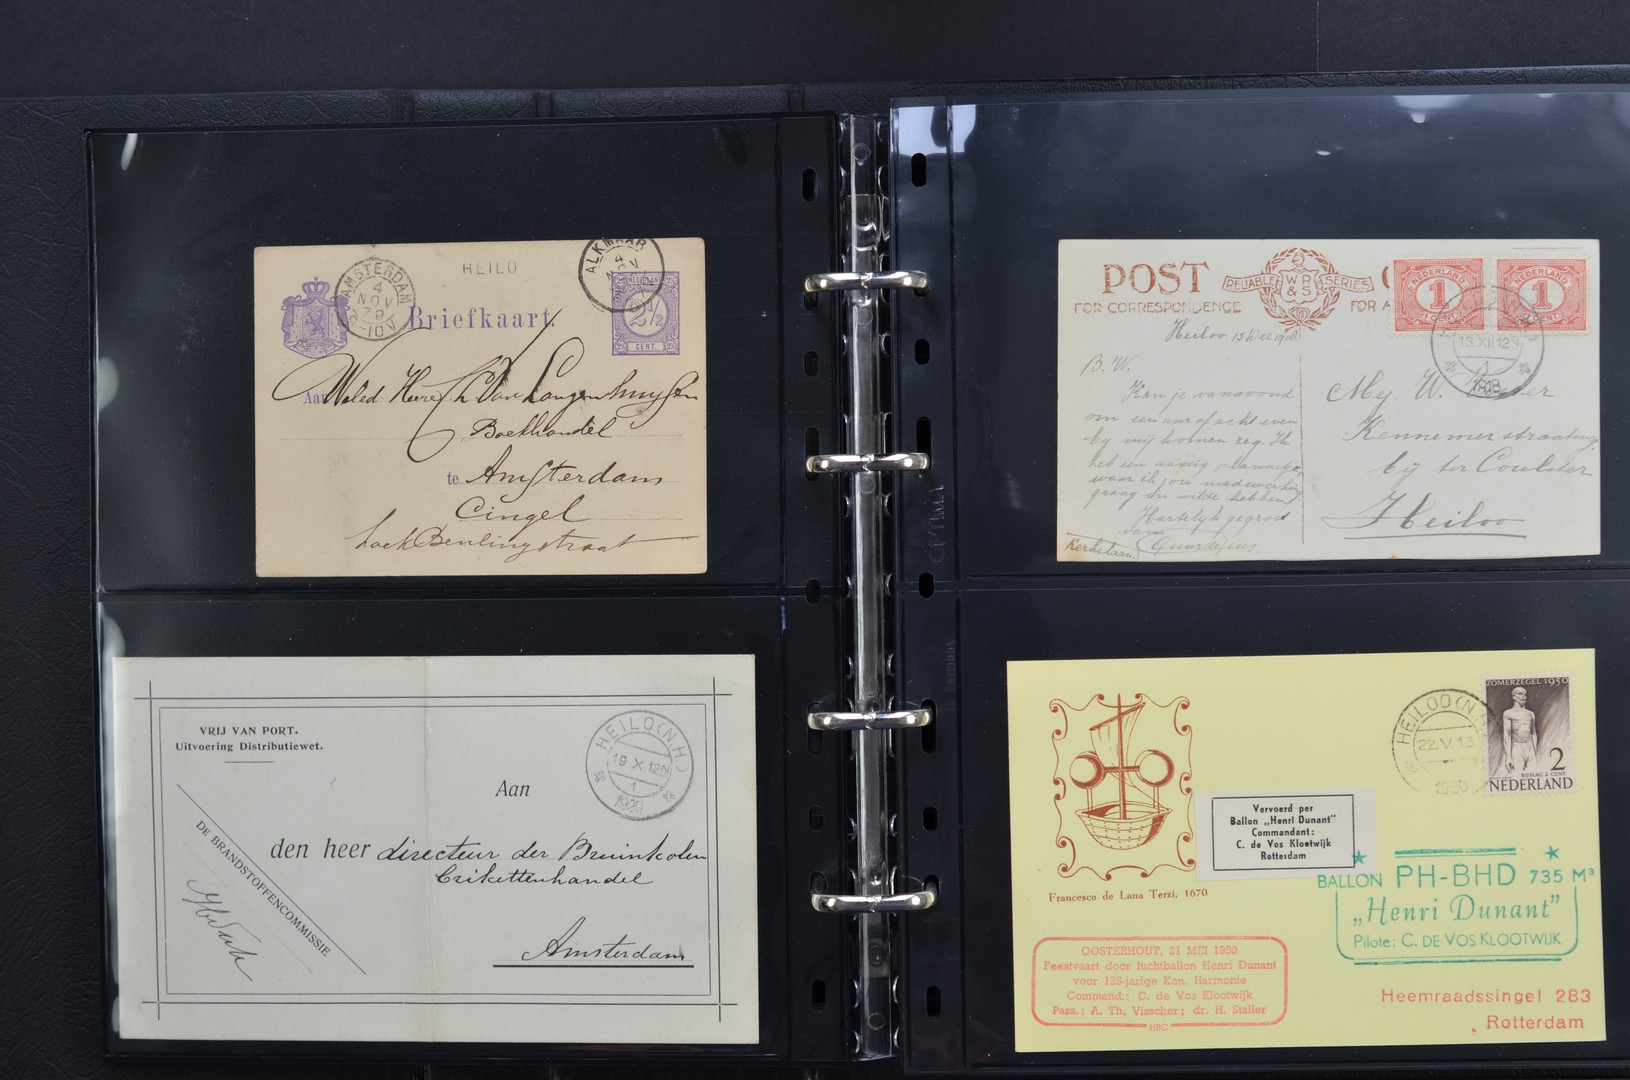 AMSTERDAM
4
NOV
HEILO
ALKMAAR
4
NOV
Briefkaart.
NEDERLAND
2½
CENT.
Aan Weled. Heere
Boekhandel
te Amsterdam
Cingel
hoek Beulingstraat
VRIJ VAN PORT.
Uitvoering Distributiewet.
HEILO (N.H.)
19 X 12N
1
1920
Aan
den heer directeur der Bruinkolen
Brikettenhandel
Amsterdam
DE BRANDSTOFFENCOMMISSIE
POST
RELIABLE W R & S SERIES
FOR CORRESPONDENCE
FOR A
NEDERLAND
1
1 CENT
NEDERLAND
1
1 CENT
13 XII 12N
1
1918
Heiloo 13 Dec 1918
B. W.
Kan je vanavond
om een uur of acht even
bij mij komen zeg. Ik
heb een aardig plannetje,
waar ik jou medewerking
graag in wilde hebben!
Hartelijk gegroet
Kerkelaan.
Mej. W.
Kennemerstraatweg
bij ter Coulster
Heiloo
ZOMERZEGEL 1950
2
BIJSLAG 2 CENT
NEDERLAND
HEILOO (N.H.)
22.V.13
1950
Vervoerd per
Ballon „Henri Dunant"
Commandant:
C. de Vos Klootwijk
Rotterdam
Francesco de Lana Terzi, 1670
BALLON PH-BHD 735 M³
„Henri Dunant"
Pilote: C. DE VOS KLOOTWIJK
OOSTERHOUT, 21 MEI 1950
Feestvaart door luchtballon Henri Dunant
voor 125-jarige Kon. Harmonie
Command.: C. de Vos Klootwijk
Pass.: A. Th. Visscher; dr. H. Staller
HBC
Heemraadssingel 283
Rotterdam